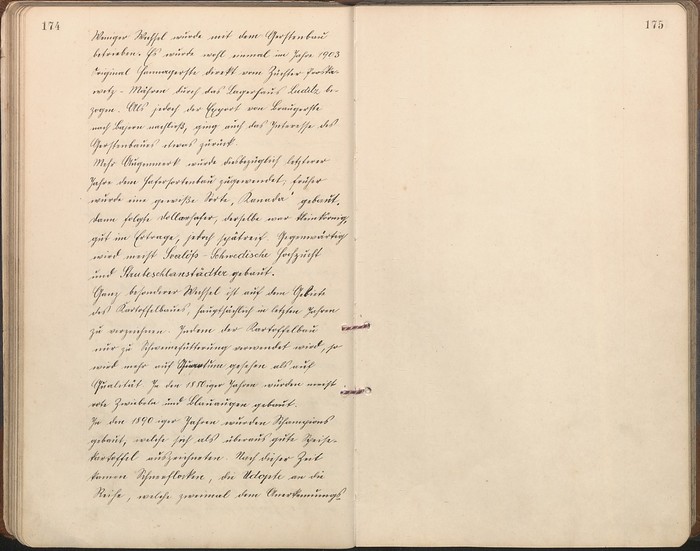 174
175
Weniger Wechsel wurde mit dem Gerstenbau
betrieben. Es wurde wohl einmal im Jahre 1903
Original Hannagerste direkt vom Züchter Prosko-
wetz - Mähren durch das Lagerhaus Luditz be-
zogen. Als jedoch der Export von Braugerste
nach Bayern nachließ, ging auch das Interesse des
Gerstenbaues etwas zurück.
Mehr Augenmerk wurde diesbezüglich letzterer
Jahre dem Hafersortenbau zugewendet, früher
wurde eine gewiße Sorte „Kanada" gebaut,
dann folgte Dollarhafer, derselbe war kleinkörnig,
gut im Ertrage, jedoch spätreif. Gegenwärtig
wird meist Svalöfs - Schwedische Hochzucht
und Strubeschlanstädter gebaut.
Ganz besonderer Wechsel ist auf dem Gebiete
des Kartoffelbaues, hauptsächlich in letzten Jahren
zu verzeichnen. Indem der Kartoffelbau
nur zu Schweinefütterung verwendet wird, so
wird mehr auf Quantum gesehen als auf
Qualität. In den 1880iger Jahren wurden meist
rote Zwiebeln und Blauaugen gebaut.
In den 1890 iger Jahren wurden Champions
gebaut, welche sich als überaus gute Speise-
kartoffel auszeichneten. Nach dieser Zeit
kamen Schneeflocken, die an die
Reihe, welche zweimal dem Anerkennungs-